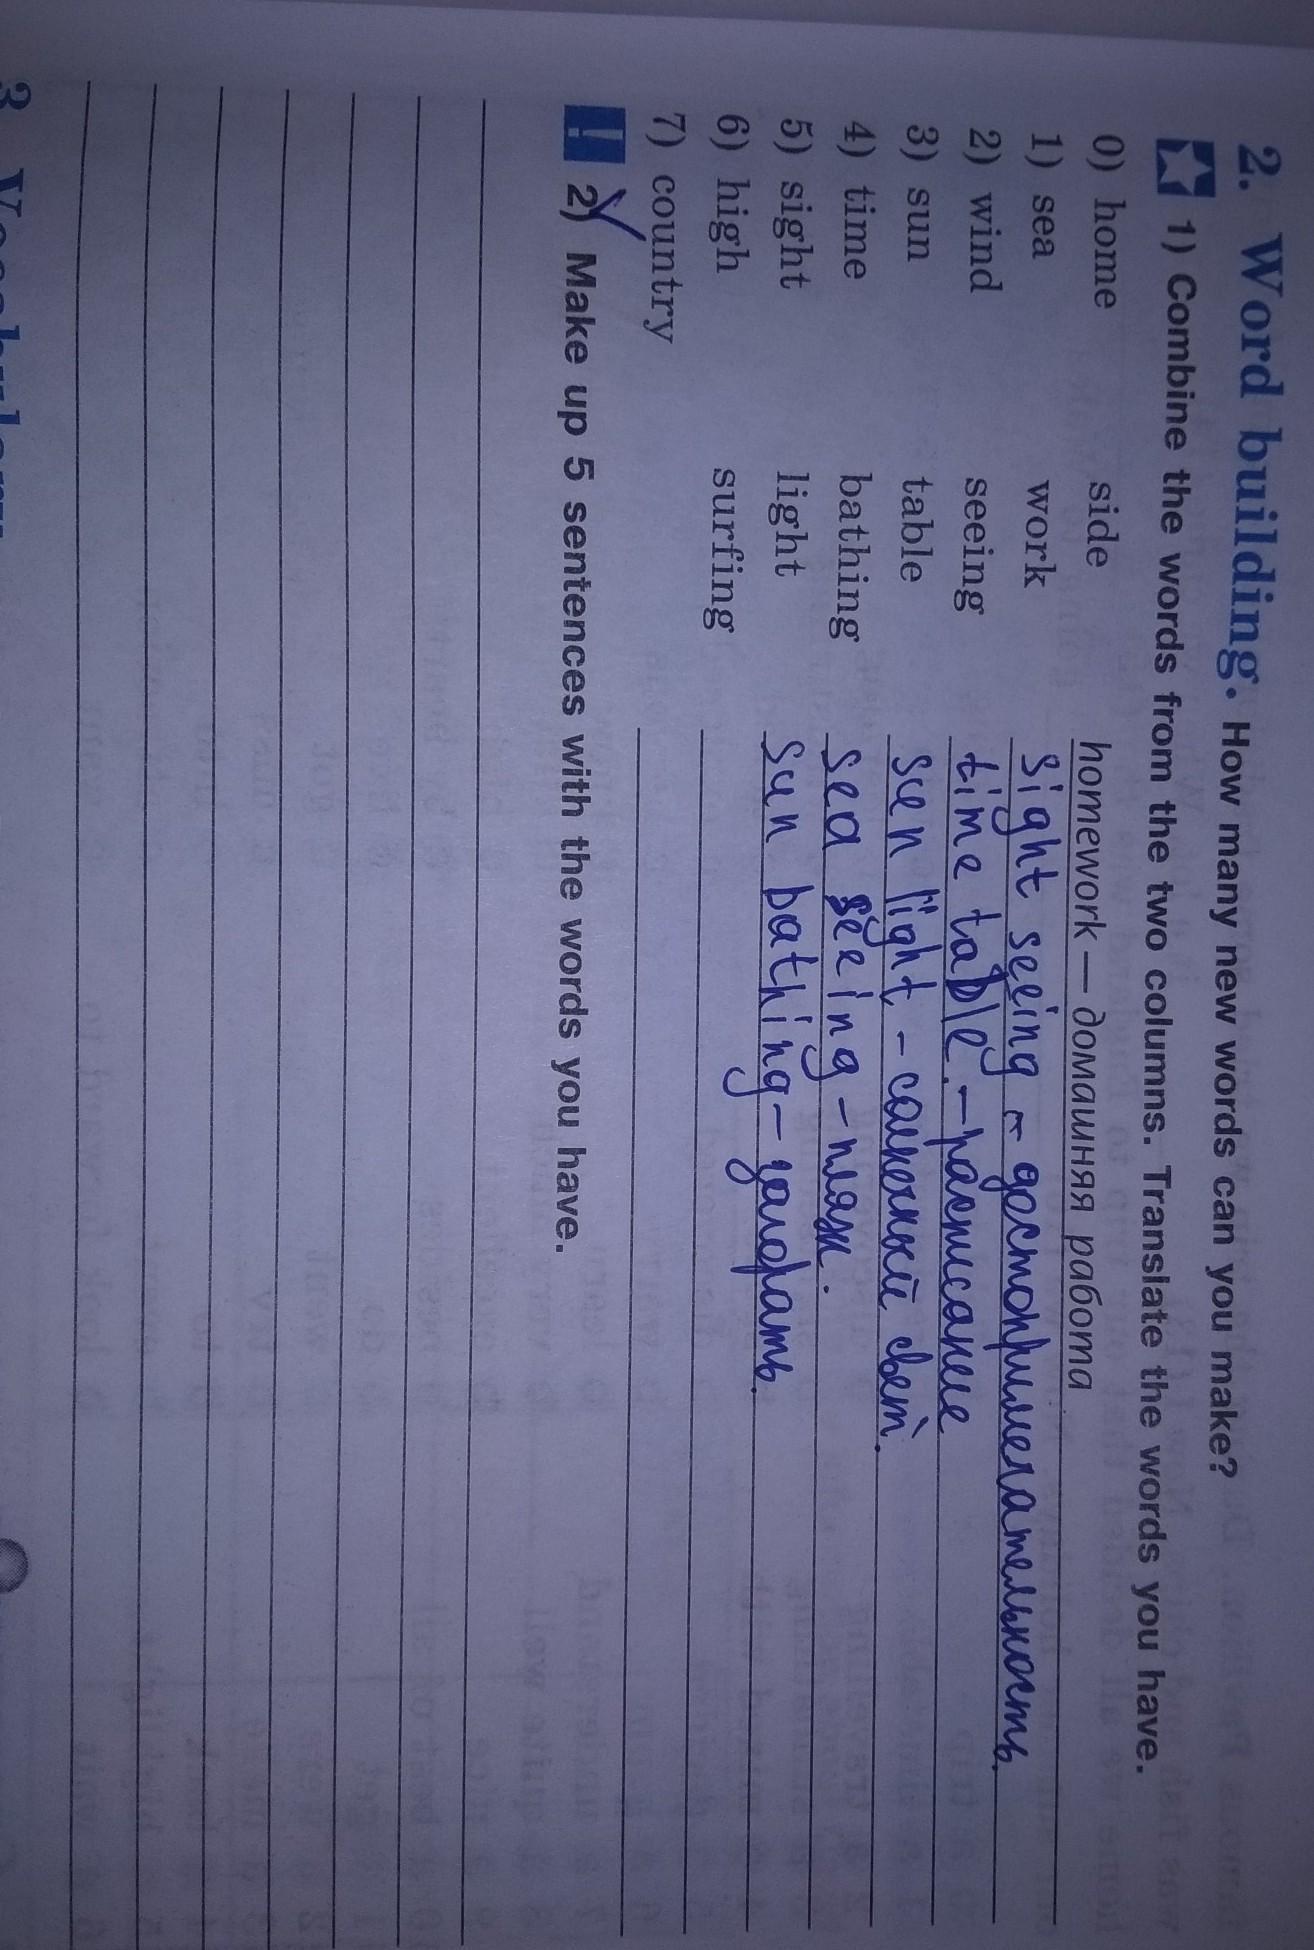 2. Word building. How many new words can you make?
1) Combine the words from the two columns. Translate the words you have.
0) home side homework — домашняя работа
1) sea work sight seeing - достопримечательность
2) wind seeing time table. - расписание
3) sun table sun light - солнечный свет.
4) time bathing sea seeing - пляж.
5) sight light sun bathing - загорать.
6) high surfing
7) country
! 2) Make up 5 sentences with the words you have.